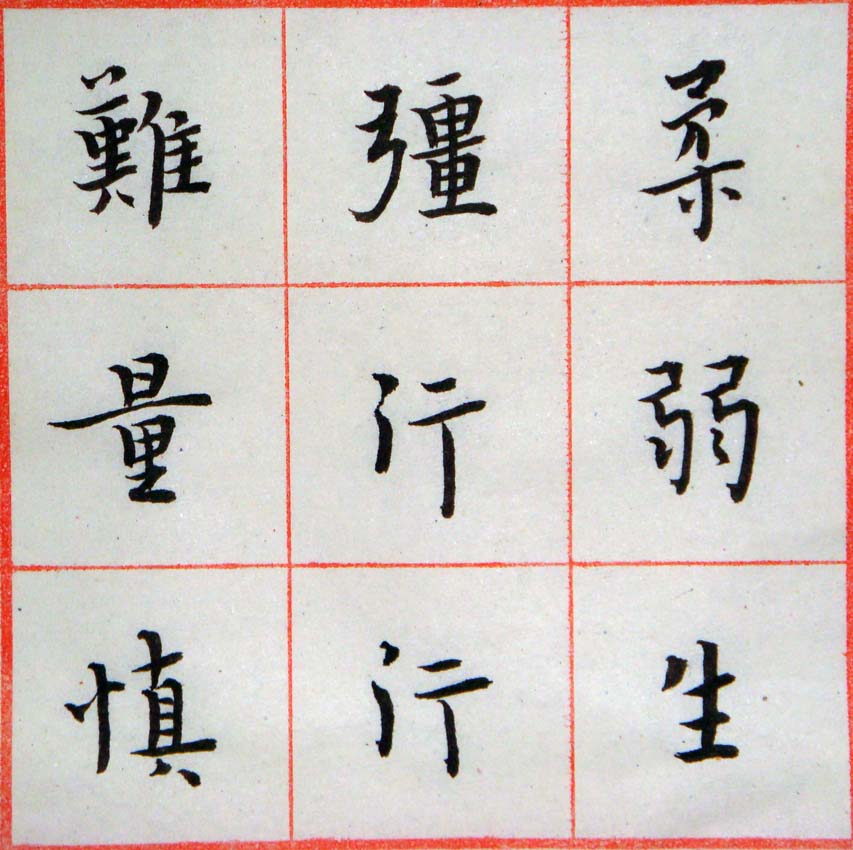 柔弱生
彊行行
難量慎